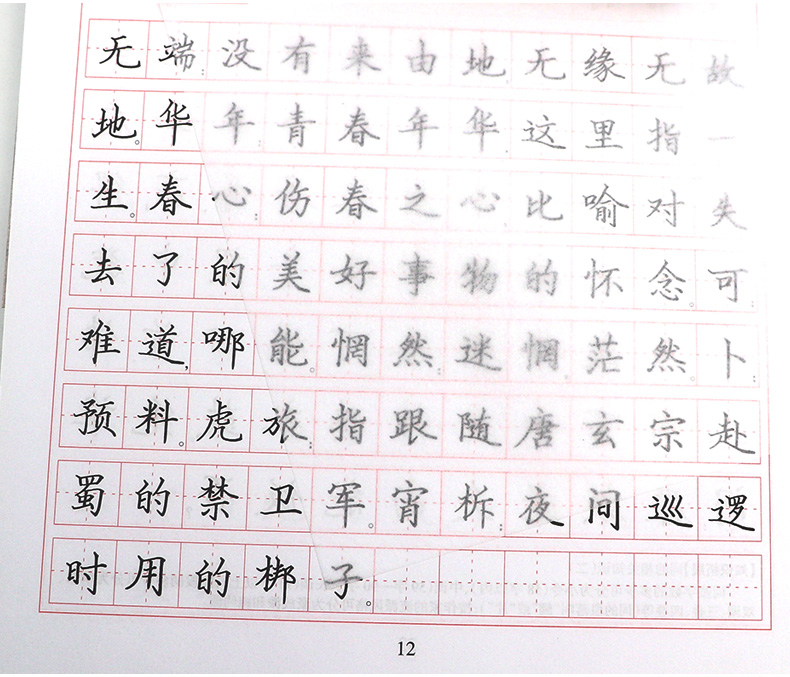 无端:没有来由地,无缘无故
地。华年:青春年华,这里指一
生。春心:伤春之心,比喻对失
去了的美好事物的怀念。可
难道,哪能。惘然:迷惘。茫然。卜
预料。虎旅:指跟随唐玄宗赴
蜀的禁卫军。宵柝:夜间巡逻
时用的梆子。
12